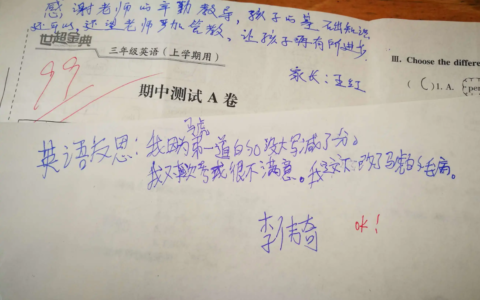 感谢老师的辛勤教导,孩子的基础知识
还可以,还望老师多加管教。让孩子有所进步.
世超金典
三年级英语(上学期用)
家长:王红
III. Choose the differe
( C ) 1. A.
99
期中测试 A 卷
马虎
英语反思:我因为第一道的没大写减了分。
我对很不满意。我改了马虎的毛病。
李
ok!